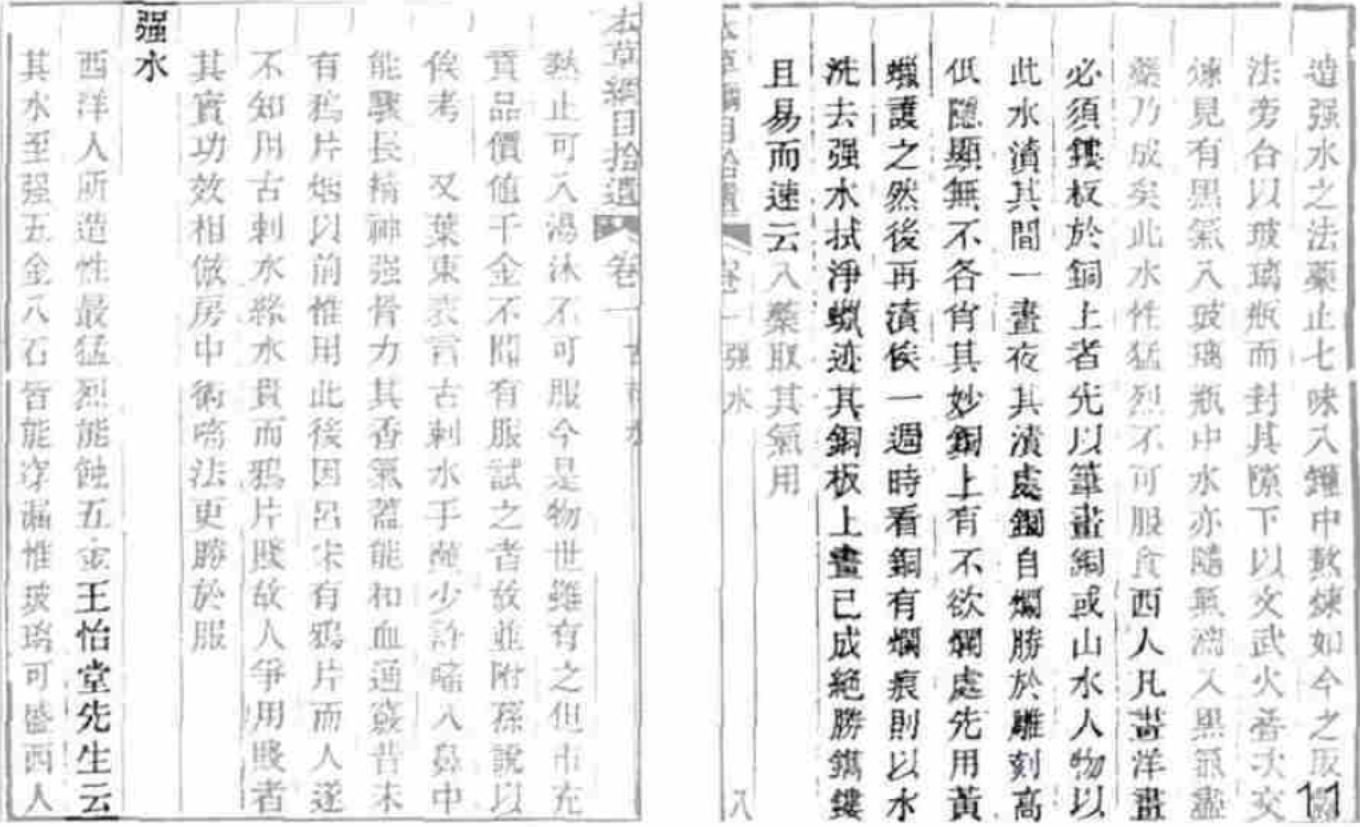 本草綱目拾遺 卷一 古剌水
熱止可入湯沐不可服今是物世雖有之但市充
寶品價值千金不聞有服試之者故並附孫說以
俟考 又葉東表言古剌水手蘸少許㗜入鼻中
能驟長精神强骨力其香氣蓋能和血通竅昔未
有鴉片烟以前惟用此後因呂宋有鴉片而人遂
不知用古剌水緣水貴而鴉片賤故人爭用賤者
其實功效相倣房中術㗜法更勝於服
强水
西洋人所造性最猛烈能蝕五金王怡堂先生云
其水至强五金八石皆能穿漏惟玻璃可盛西人
造强水之法藥止七味入罐中熬煉如今之取露
法旁合以玻璃瓶而封其隙下以文武火叠次交
煉見有黑氣入玻璃瓶中水亦隨氣滴入黑氣盡
藥乃成矣此水性猛烈不可服食西人凡畫洋畫
必須鏤板於銅上者先以筆畫銅或山水人物以
此水漬其間一晝夜其漬處銅自爛勝於雕刻高
低隱顯無不各肖其妙銅上有不欲爛處先用黃
蠟護之然後再漬俟一週時看銅有爛痕則以水
洗去强水拭淨蠟迹其銅板上畫已成絕勝鐫鏤
且易而速云入藥取其氣用
本草綱目拾遺 卷一 强水 八
11